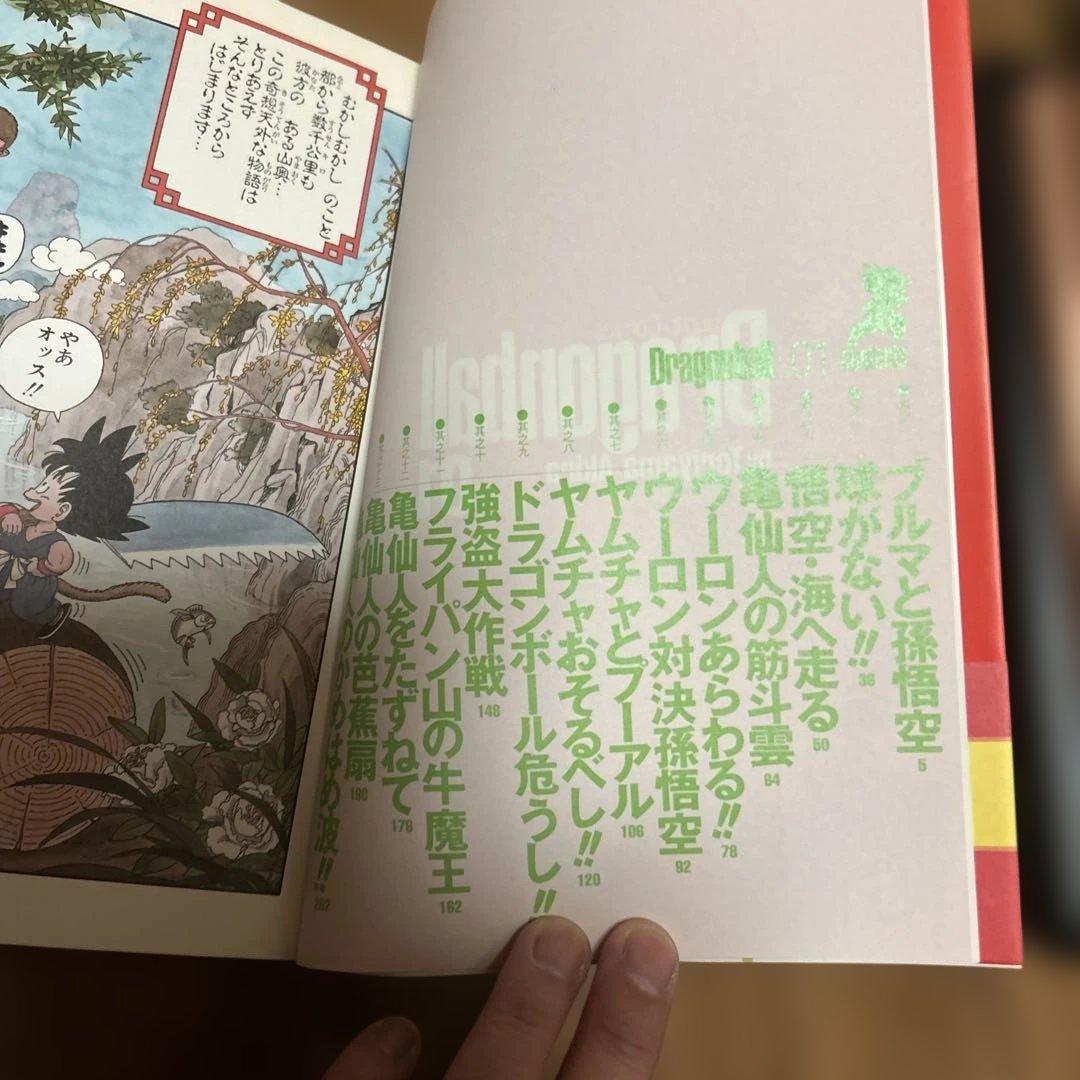 むかしむかし のこと
都から数千公里も
彼方の ある山奥…
この奇想天外な物語は
とりあえず
そんなところから
はじまります…
やあ
オッス!!
Dragonball 01
ブルマと孫悟空 5
球がない!! 36
悟空・海へ走る 50
亀仙人の筋斗雲 64
ウーロンあらわる!! 78
ウーロン対決孫悟空 92
其之七 ヤムチャとプーアル 106
其之八 ヤムチャおそるべし!! 120
其之九 ドラゴンボール危うし!!
其之十 強盗大作戦 148
其之十一 フライパン山の牛魔王 162
其之十二 亀仙人をたずねて 176
其之十三 亀仙人の芭蕉扇 190
かめはめ波!! 202